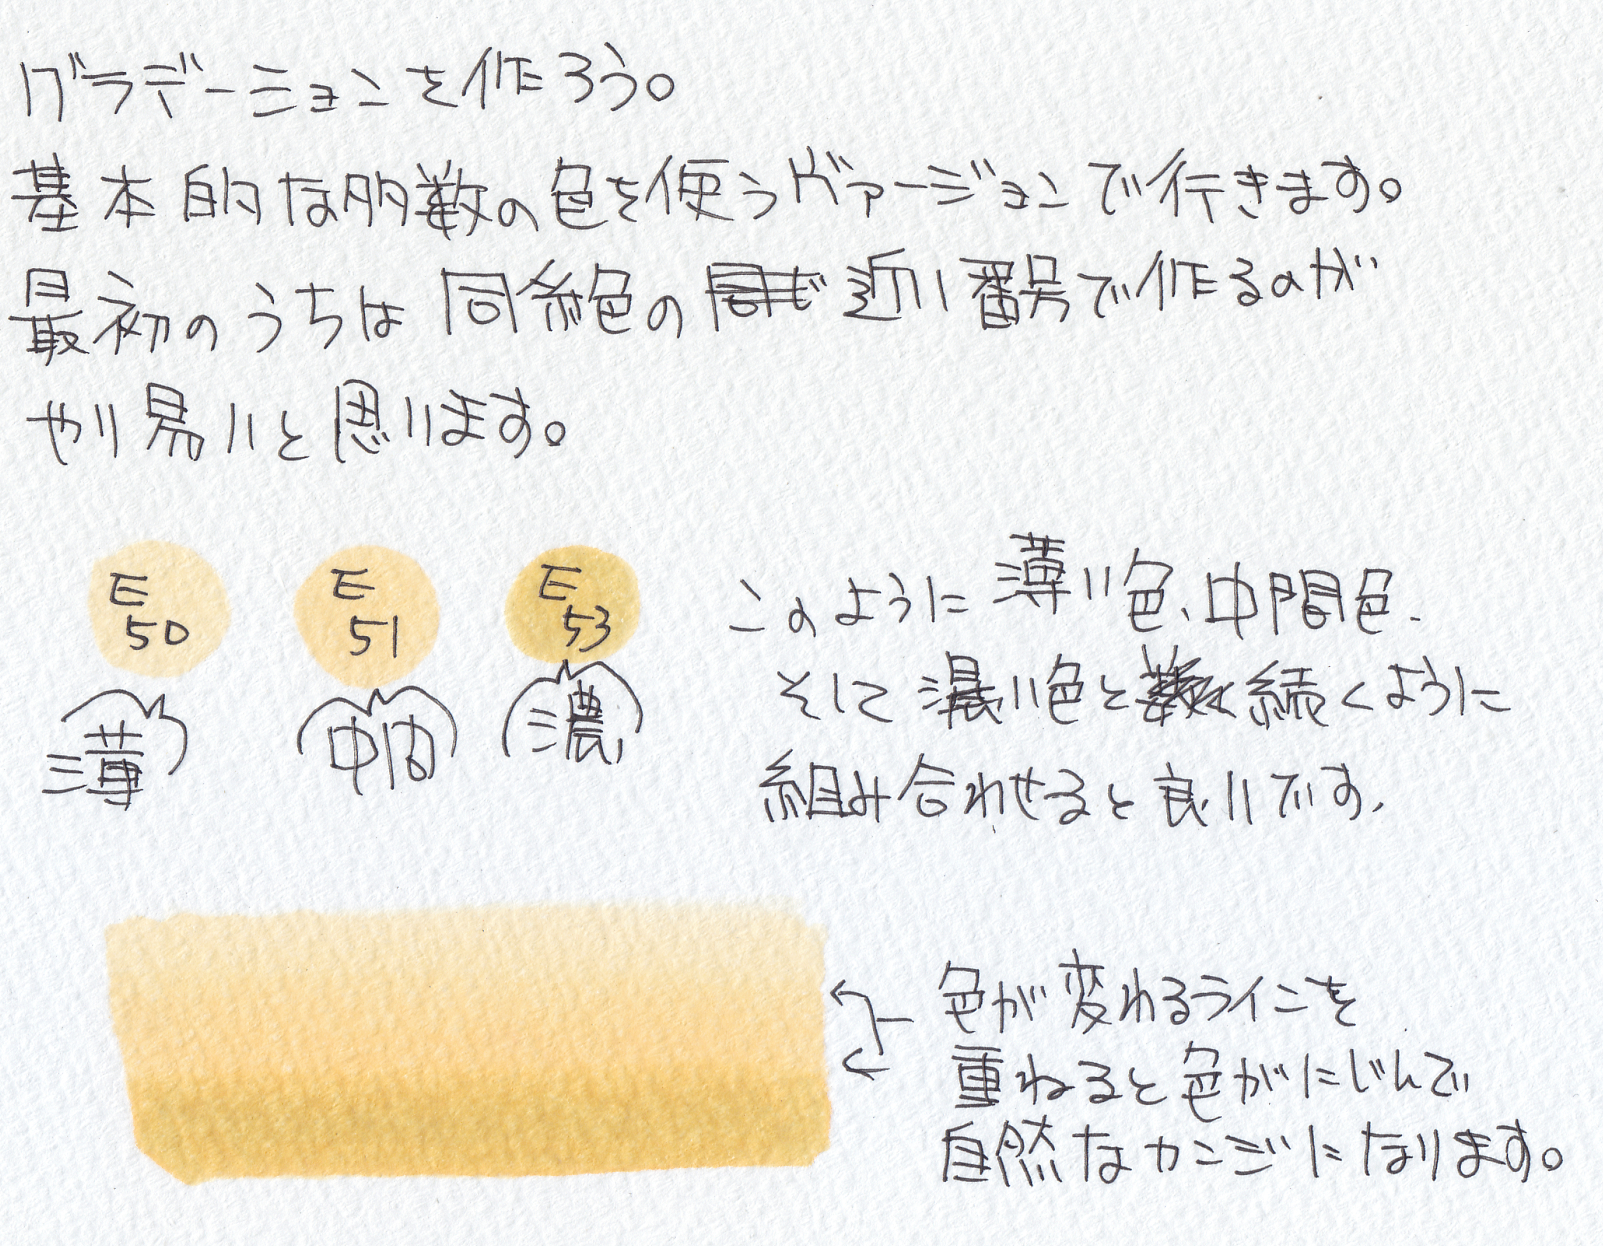 グラデーションを作ろう。
基本的な多数の色を使うヴァージョンで行きます。
最初のうちは同系色の近い番号で作るのが
やり易いと思います。
E50
E51
E53
薄
中間
濃
このように薄い色、中間色、
そして濃い色と続くように
組み合わせると良いです。
色が変わるラインを
重ねると色がにじんで
自然なカンジになります。